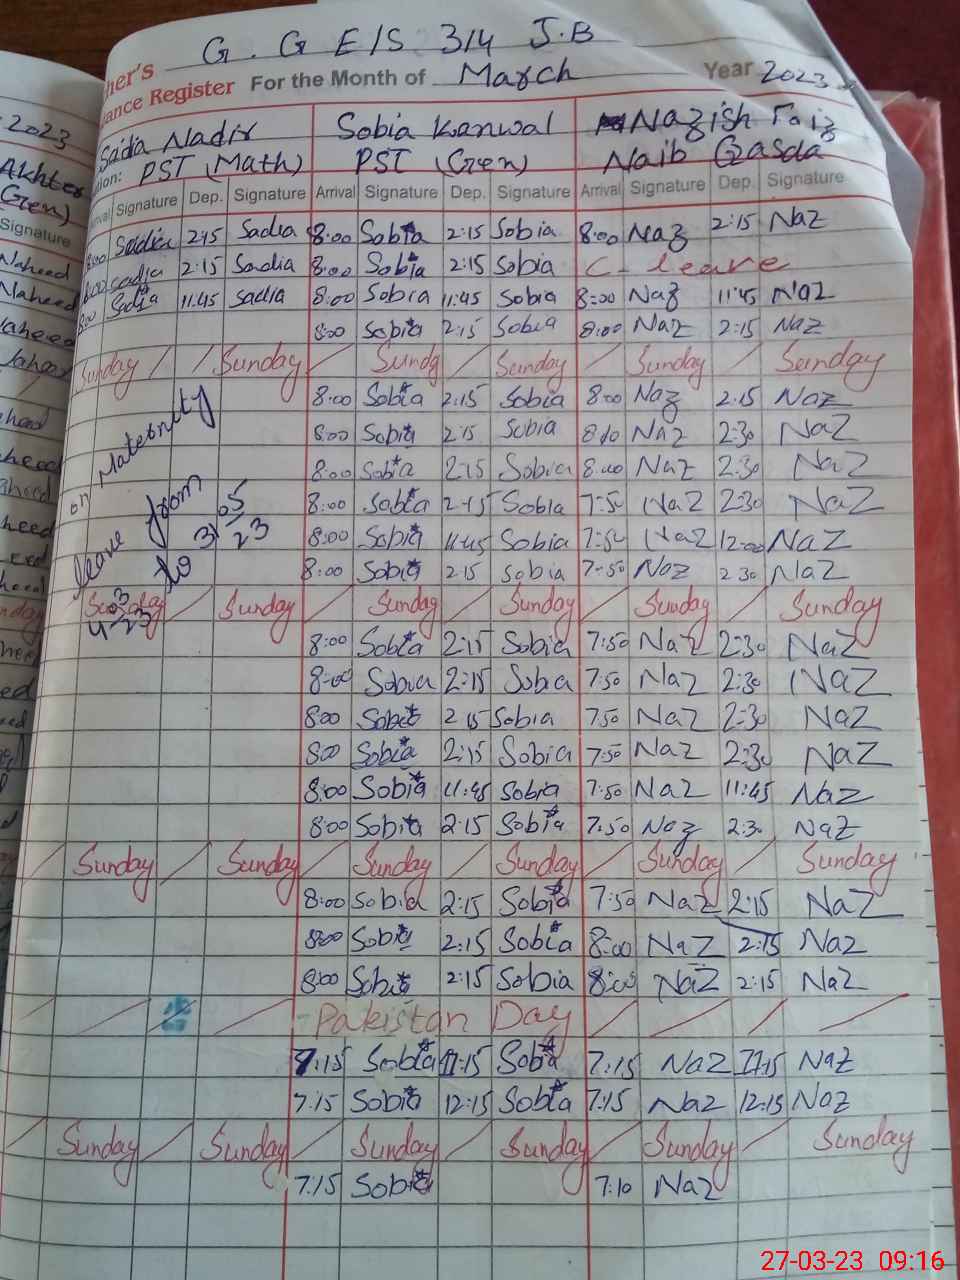 G. G E/S 314 J.B
her's
ance Register For the Month of March Year 2023
Sadia Nadir Sobia Kanwal Nazish Faiz
tion: PST (Math) PST (Gen) Naib Qasda
val Signature Dep. Signature Arrival Signature Dep. Signature Arrival Signature Dep. Signature
8:00 Saidia 2:15 Sadia 8:00 Sobia 2:15 Sobia 8:00 Naz 2:15 Naz
8:00 Sadia 2:15 Sadia 8:00 Sobia 2:15 Sobia C- leave
8:00 Sadia 11:45 Sadia 8:00 Sobia 11:45 Sobia 8:00 Naz 11:45 Naz
8:00 Sobia 2:15 Sobia 8:00 Naz 2:15 Naz
Sunday / / Sunday / Sunday / Sunday / Sunday / Sunday
8:00 Sobia 2:15 Sobia 8:00 Naz 2:15 Naz
8:00 Sobia 2:15 Sobia 8:00 Naz 2:30 Naz
8:00 Sobia 2:15 Sobia 8:00 Naz 2:30 Naz
8:00 Sobia 2:15 Sobia 7:50 Naz 2:30 Naz
8:00 Sobia 11:45 Sobia 7:50 Naz 12:00 Naz
8:00 Sobia 2:15 Sobia 7:50 Naz 2:30 Naz
on Maternity
leave from
to 31-05-23
4-03-23
Sunday / Sunday / Sunday / Sunday / Sunday / Sunday
8:00 Sobia 2:15 Sobia 7:50 Naz 2:30 Naz
8:00 Sobia 2:15 Sobia 7:50 Naz 2:30 Naz
8:00 Sobia 2:15 Sobia 7:50 Naz 2:30 Naz
8:00 Sobia 2:15 Sobia 7:50 Naz 2:30 Naz
8:00 Sobia 11:45 Sobia 7:50 Naz 11:45 Naz
8:00 Sobia 2:15 Sobia 7:50 Naz 2:30 Naz
/ Sunday / Sunday / Sunday / Sunday / Sunday / Sunday
8:00 Sobia 2:15 Sobia 7:50 Naz 2:15 Naz
8:00 Sobia 2:15 Sobia 8:00 Naz 2:15 Naz
8:00 Sobia 2:15 Sobia 8:00 Naz 2:15 Naz
Pakistan Day
7:15 Sobia 11:15 Sobia 7:15 Naz 11:15 Naz
7:15 Sobia 12:15 Sobia 7:15 Naz 12:15 Naz
/ Sunday / Sunday / Sunday / Sunday / Sunday / Sunday
7:15 Sobia 7:10 Naz
2023
Akhter
(Gen)
Signature
Naheed
Naheed
27-03-23 09:16